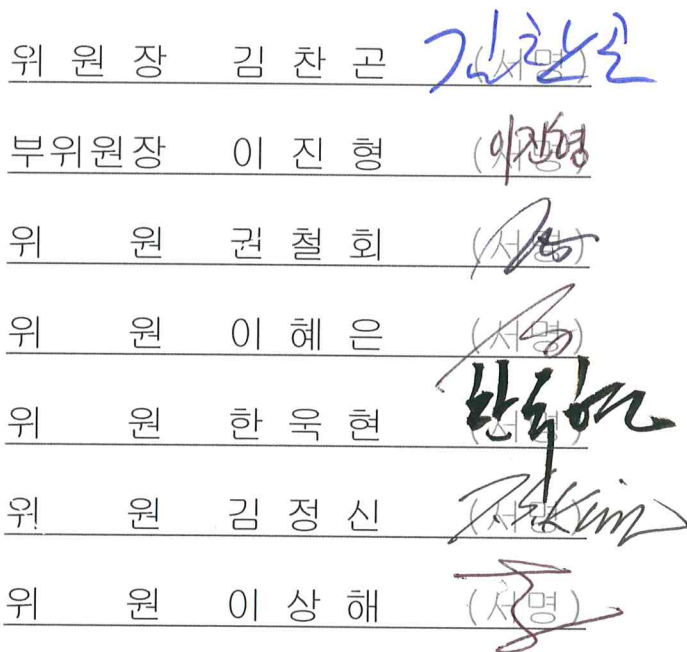 위 원 장 김 찬 곤 (서명) 김찬곤
부위원장 이 진 형 (서명) 이진형
위 원 권 철 회 (서명)
위 원 이 혜 은 (서명)
위 원 한 욱 현 (서명) 한욱현
위 원 김 정 신 (서명)
위 원 이 상 해 (서명)